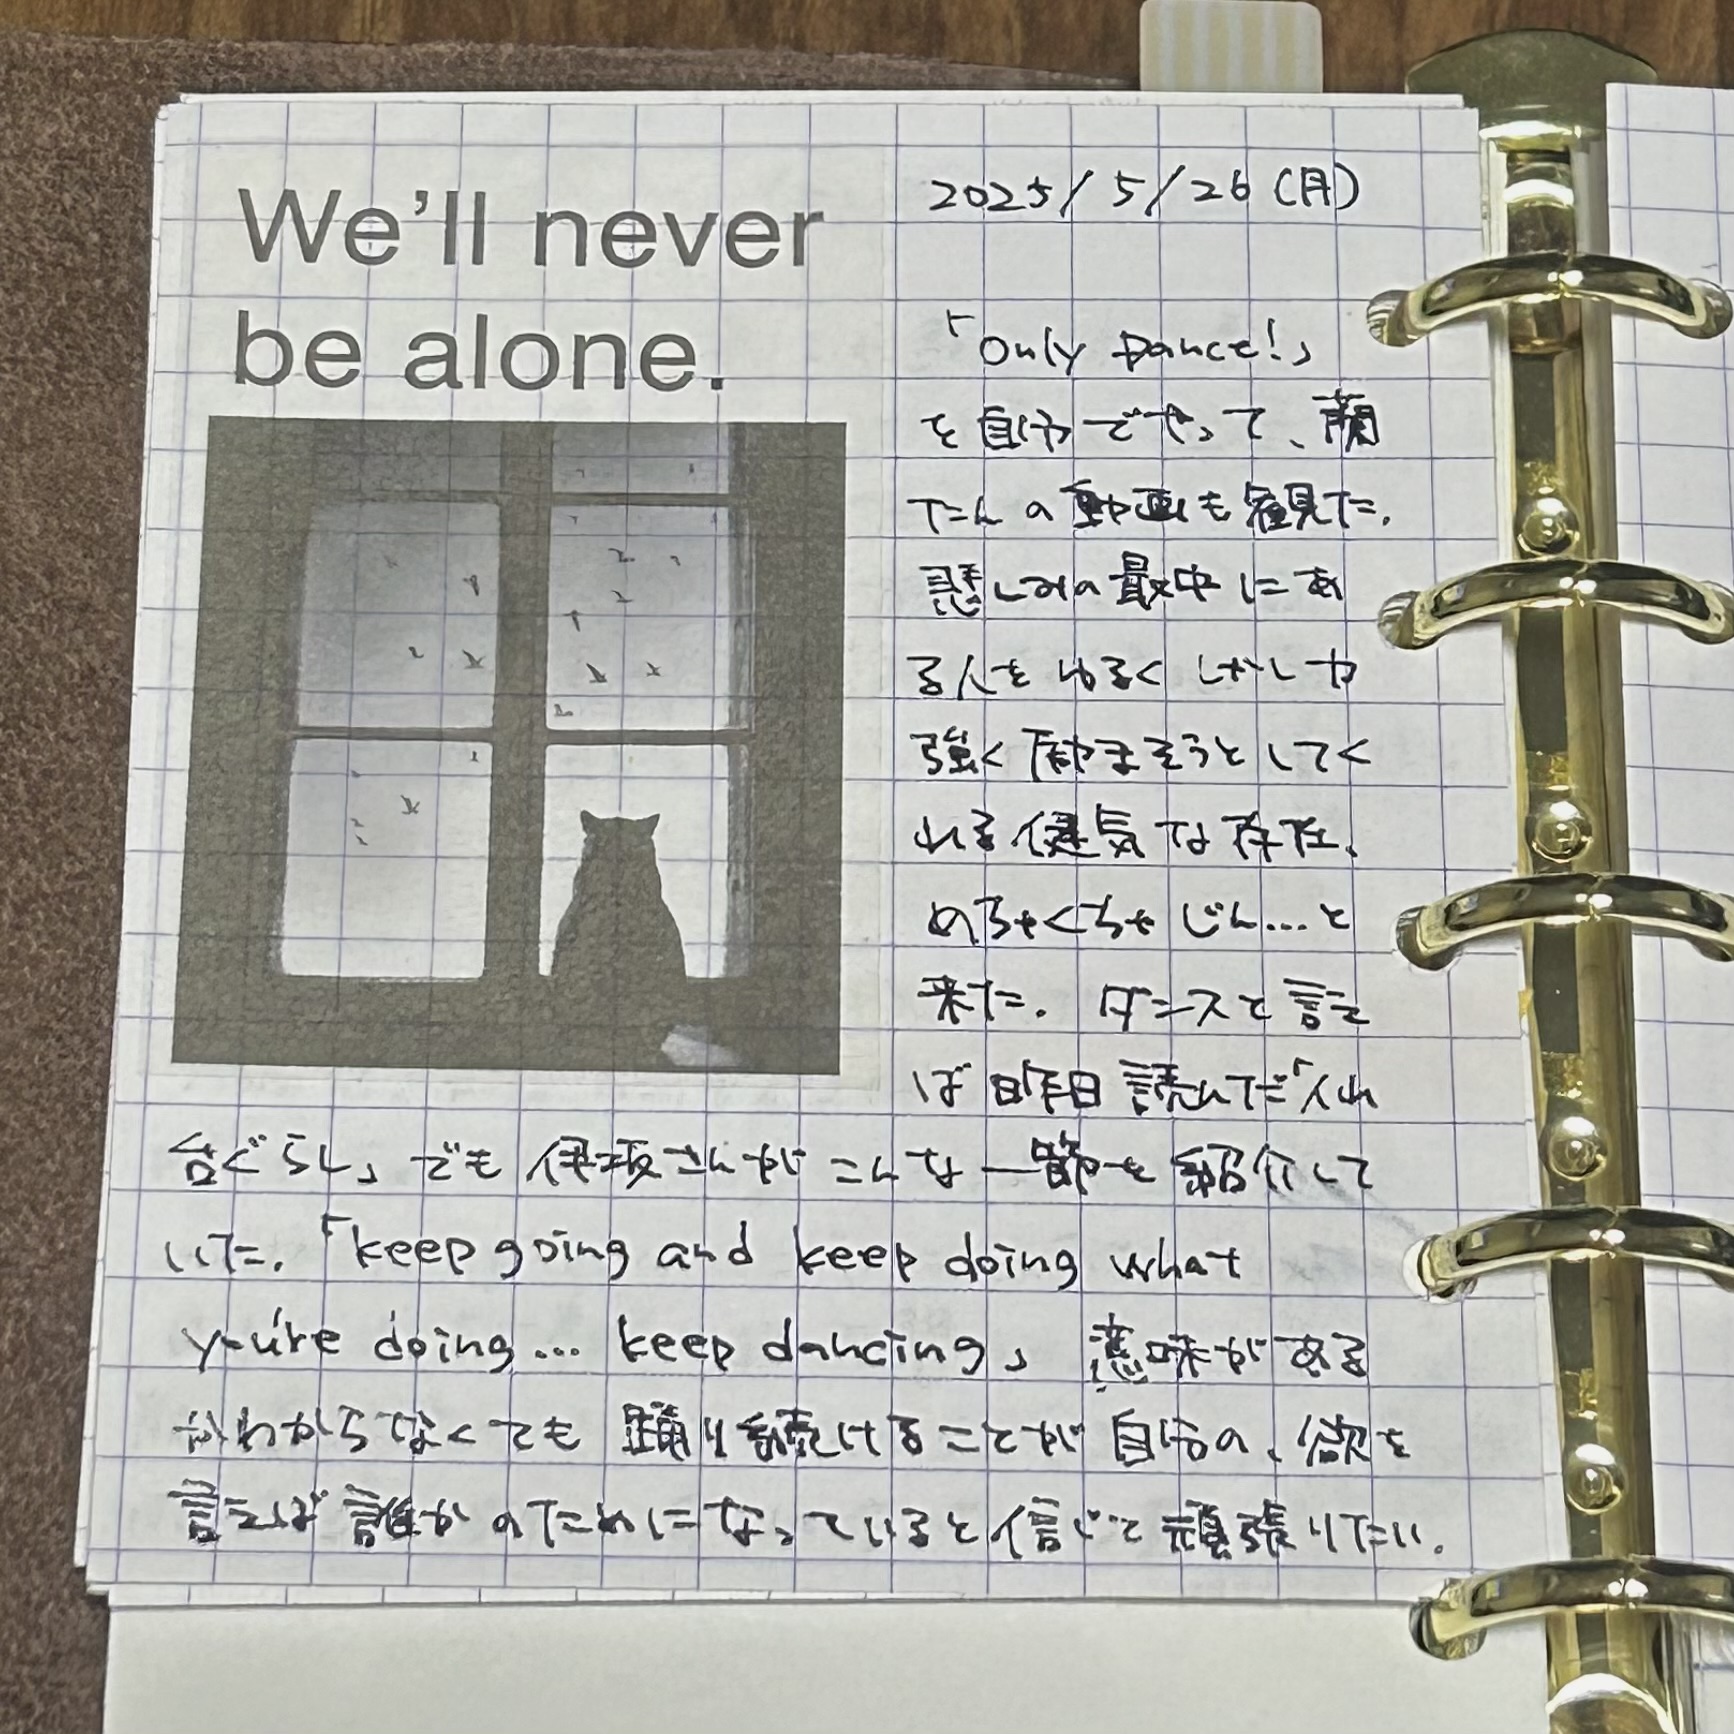 We'll never
be alone.
2025/5/26(月)
「Only Dance!」
を自分でやって、蘭
たんの動画も観た。
悲しみの最中にあ
る人をゆるくしかしか
強く励まそうとしてく
れる健気な存在。
めちゃくちゃじん…と
来た。ダンスと言え
ば昨日読んでた「くれ
台ぐらし」でも伊坂さんがこんな一節を紹介して
いた。「keep going and keep doing what
you're doing... keep dancing」意味がある
かわからなくても踊り続けることが自分の、欲を
言えば誰かのためになっていると信じて頑張りたい。